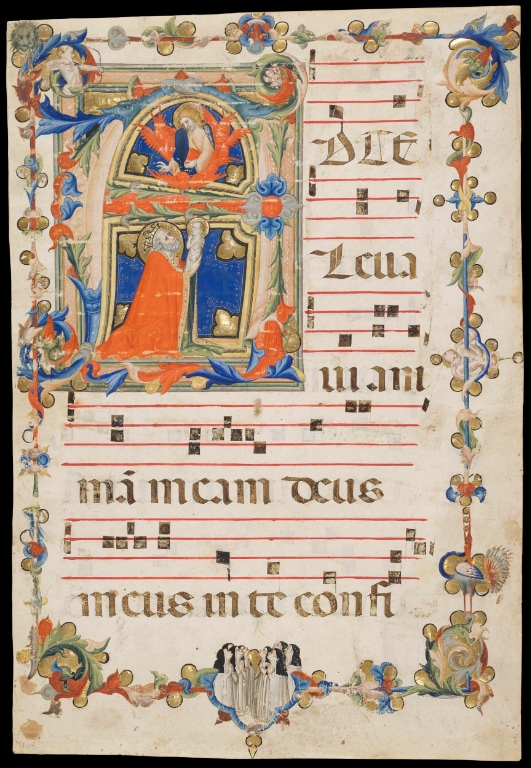 A
D TE
Leua
ui ani
mā meam deus
meus in te confi